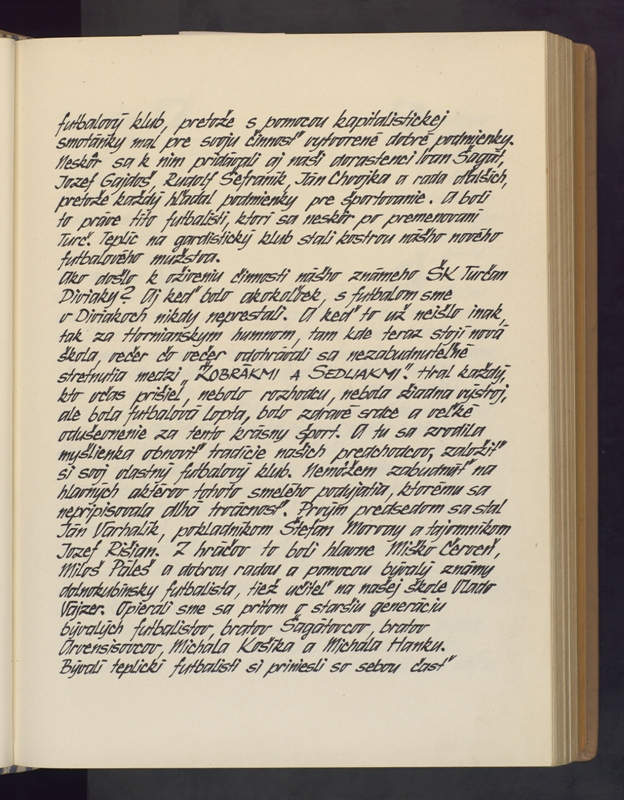 futbalový klub, pretože s pomocou kapitalistickej
smotánky mal pre svoju činnosť vytvorené dobré podmienky.
Neskôr sa k nim pridávali aj naši dorastenci Ivan Šagát,
Jozef Gajdoš, Rudolf Šefránik, Ján Chvojka a rada ďalších,
pretože každý hľadal podmienky pre športovanie. A boli
to práve títo futbalisti, ktorí sa neskôr po premenovaní
Turč. Teplíc na gardistický klub stali kostrou nášho nového
futbalového mužstva.
Ako došlo k oživeniu činnosti nášho známeho ŠK Turčan
Diviaky? Aj keď bolo akokoľvek, s futbalom sme
v Diviakoch nikdy neprestali. A keď to už neišlo inak,
tak za Hornianskym humnom, tam kde teraz stojí nová
škola, večer čo večer odohrávali sa nezabudnuteľné
stretnutia medzi "KOBRÁKMI A SEDLIAKMI". Hral každý,
kto včas prišiel, nebolo rozhodcu, nebola žiadna výstroj,
ale bola futbalová lopta, bolo zdravé srdce a veľké
oduševnenie za tento krásny šport. A tu sa zrodila
myšlienka obnoviť tradície našich predchodcov, založiť
si svoj vlastný futbalový klub. Nemôžem zabudnúť na
hlavných aktérov tohoto smelého podujatia, ktorému sa
nepripisovala dlhá trvácnosť. Prvým predsedom sa stal
Ján Varhalík, pokladníkom Štefan Morvay a tajomníkom
Jozef Rišian. Z hráčov to boli hlavne Miško Červeň,
Miloš Páleš a dobrou radou a pomocou bývalý známy
dolnokubínsky futbalista, tiež učiteľ na našej škole Vlado
Vajzer. Opierali sme sa pritom o staršiu generáciu
bývalých futbalistov, bratov Šagátovcov, bratov
Orvensisovcov, Michala Košíka a Michala Hanku.
Bývalí teplickí futbalisti si priniesli so sebou časť